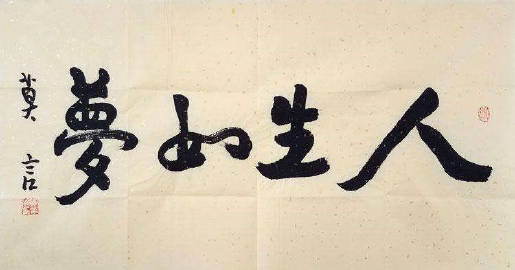 人生如夢
莫言